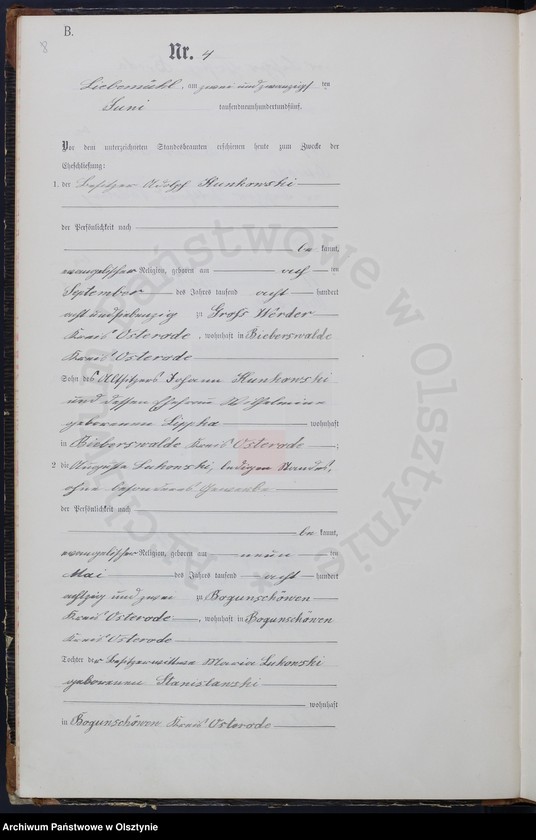 8
B.
Nr. 4
Liebemühl, am zwei und zwanzigsten
Juni tausendneunhundertundfünf.
Vor dem unterzeichneten Standesbeamten erschienen heute zum Zwecke der
Eheschließung:
1. der Besitzer Adolf Kunkowski
der Persönlichkeit nach
be kannt,
evangelischer Religion, geboren am acht ten
September des Jahres tausend acht hundert
acht und siebenzig zu Groß Wörder
Kreis Osterode, wohnhaft in Bieberswalde
Kreis Osterode
Sohn des Altsitzers Johann Kunkowski
und dessen Ehefrau Wilhelmine
geborenen Lippka wohnhaft
in Bieberswalde Kreis Osterode;
2 die Auguste Lukowski, ledigen Standes,
ohne besonderes Gewerbe
der Persönlichkeit nach
be kannt,
evangelischer Religion, geboren am neun ten
Mai des Jahres tausend acht hundert
achtzig und zwei zu Bogunschöwen
Kreis Osterode, wohnhaft in Bogunschöwen
Kreis Osterode
Tochter der Besitzerwittwe Maria Lukowski
geborenen Stanislawski
wohnhaft
in Bogunschöwen Kreis Osterode
Archiwum Państwowe w Olsztynie
Archiwum Państwowe w Olsztynie